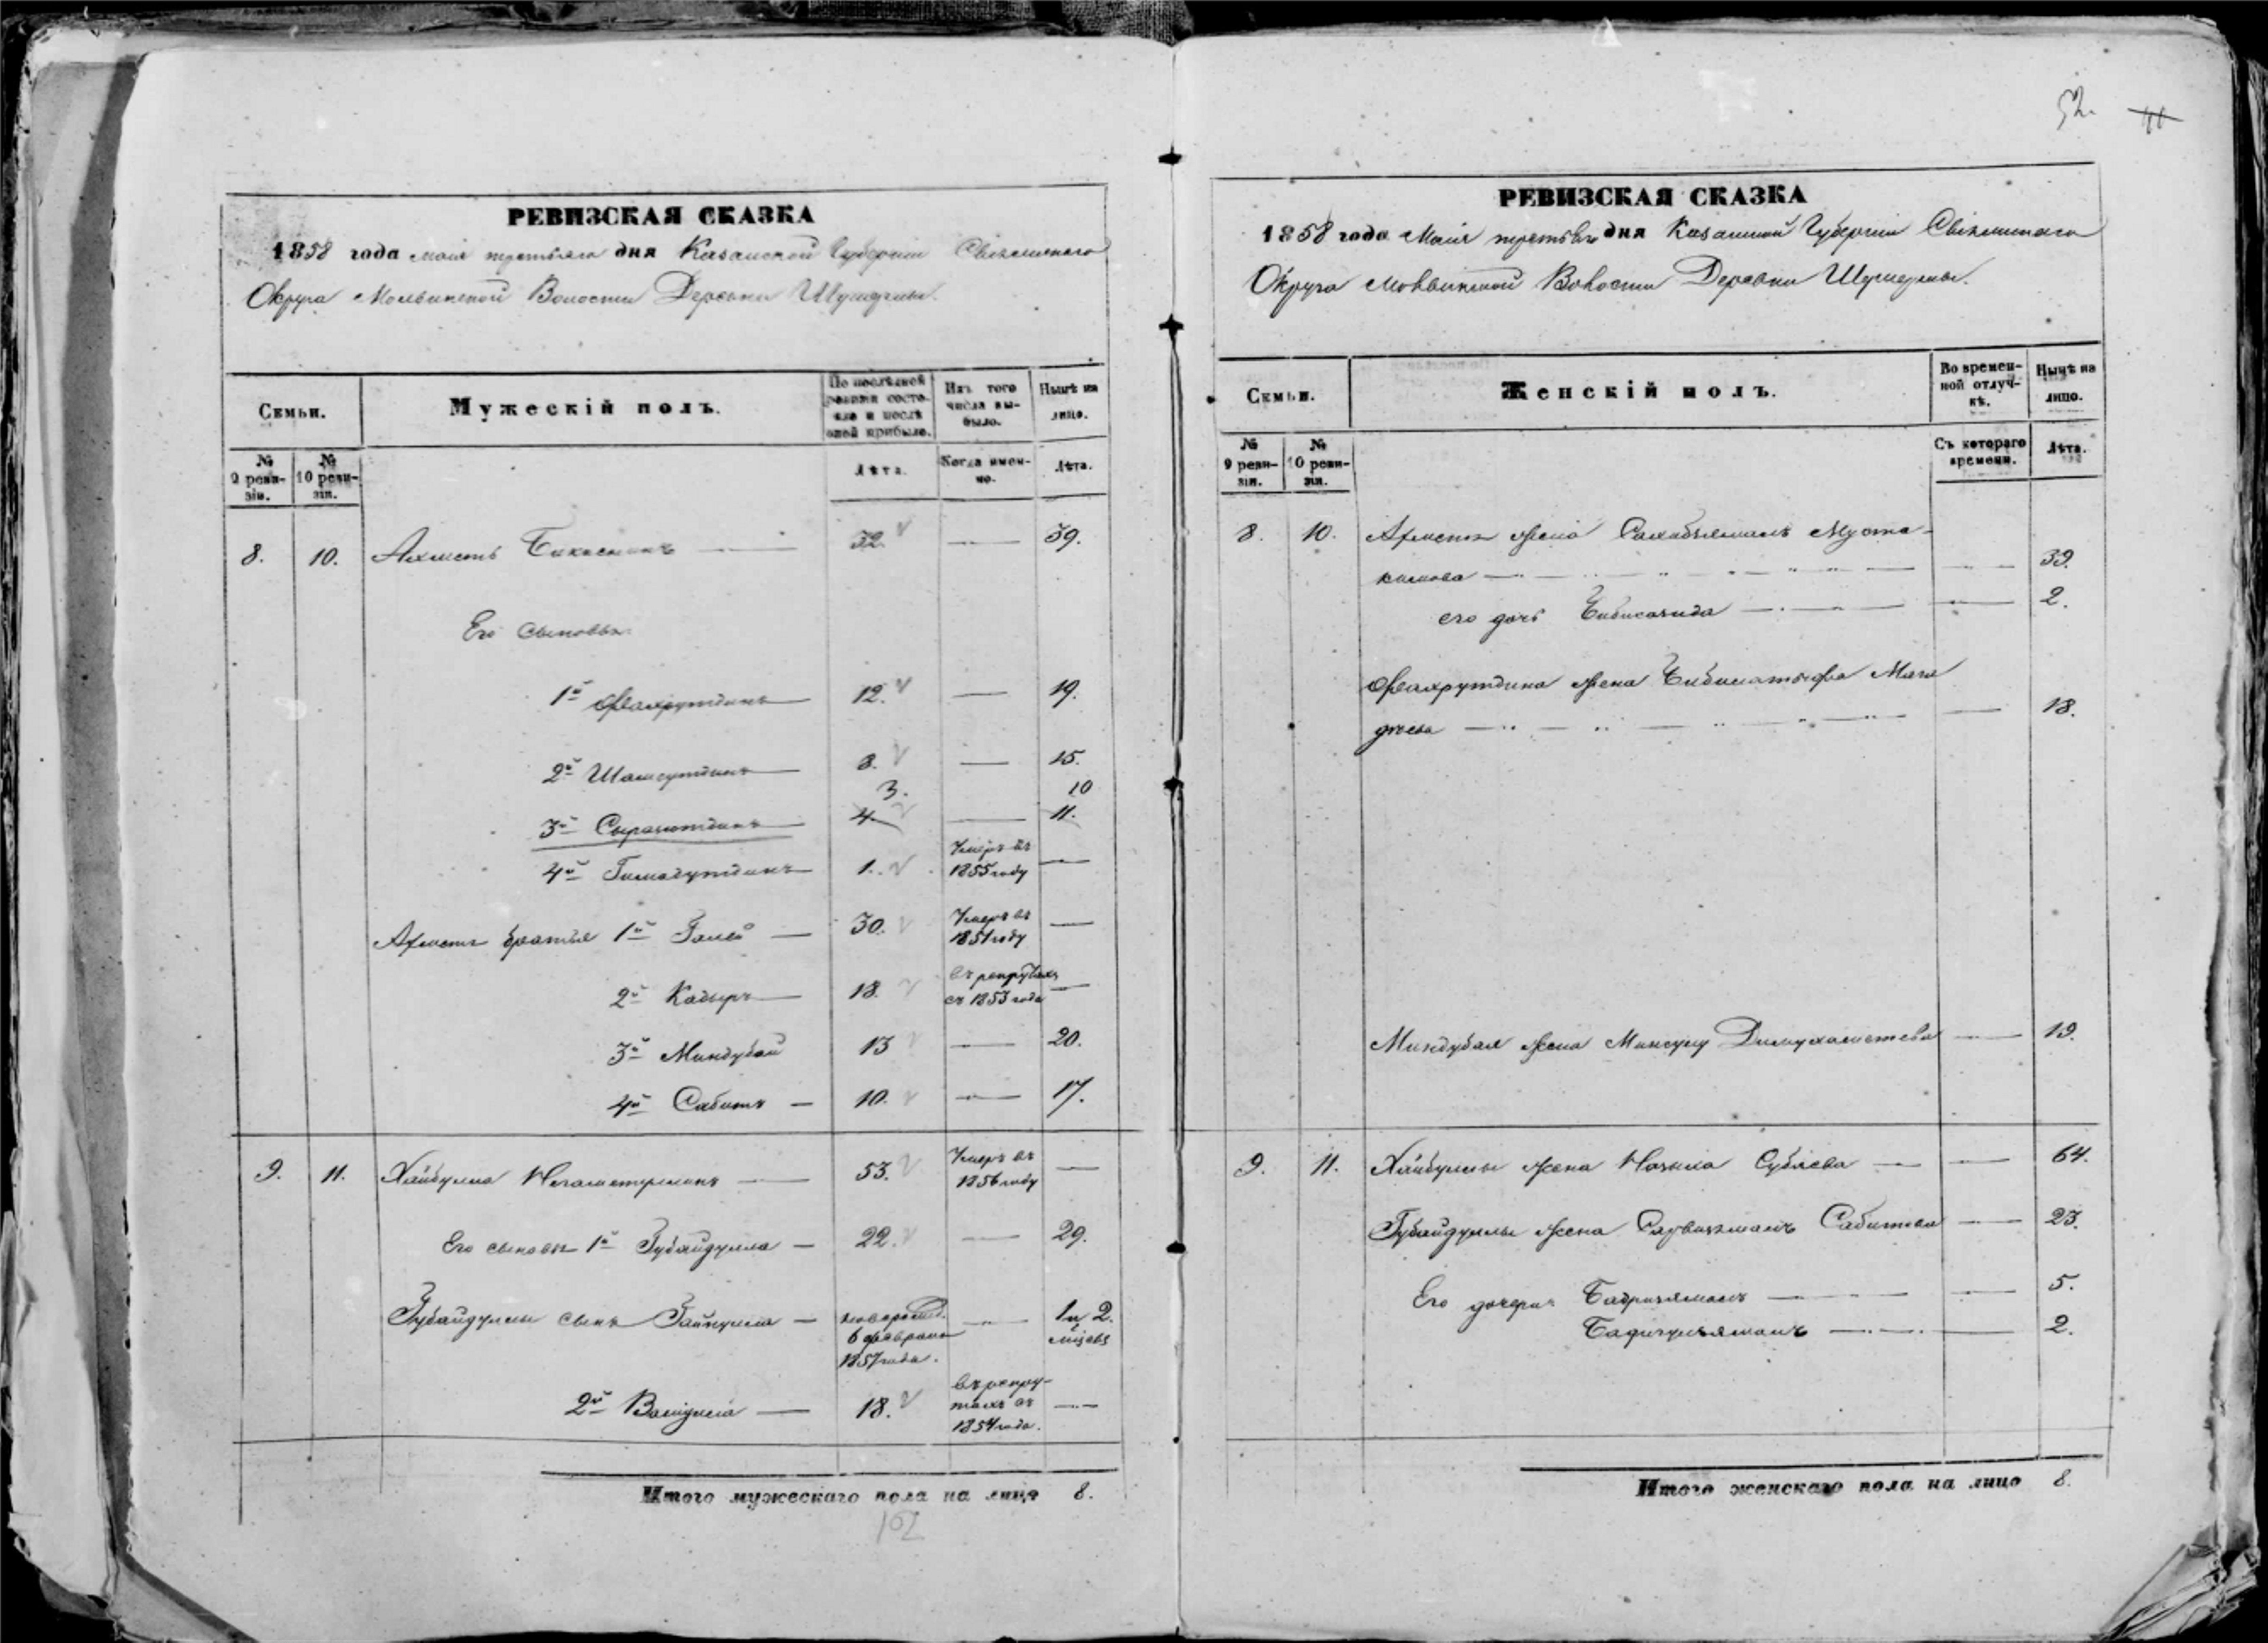 52.
РЕВИЗСКАЯ СКАЗКА
1858 года маія третьяго дня Казанской Губерніи Свіяжскаго
Округа Молвинской Волости Деревни
Семьи.
Мужескій полъ.
По послѣдней ревизіи состояло и послѣ оной прибыло.
Изъ того числа выбыло.
Нынѣ на лицо.
№ 9 ревизіи.
№ 10 ревизіи.
Лѣта.
Когда именно.
Лѣта.
8. 10. Ахметъ 32. 39.
Его сыновья
1й Фахрутдинъ 12. 19.
2й Шамсутдинъ 8. 15.
3. 10
3й 4. 11.
4й Гимадутдинъ 1. Умеръ въ
1855 году
Ахмета братья 1й Галей 30. Умеръ въ
1851 году
2й Кадыръ 18. въ рекрутахъ
съ 1853 года
3й Миндубай 13 20.
4й Сабитъ 10. 17.
9. 11. Хайбулла 53. Умеръ въ
1856 году
Его сыновья 1й Губайдулла 22. 29.
Губайдуллы сынъ новорожд. 1 и 2.
6 февраля мѣсяцъ
1857 года.
2й Валиулла 18. въ рекру-
тахъ съ
1854 года.
Итого мужескаго пола на лицо 8.
102
РЕВИЗСКАЯ СКАЗКА
1858 года Маія третьяго дня Казанской Губерніи Свіяжскаго
Округа Молвинской Волости Деревни
Семьи.
Женскій полъ.
Во временной отлучкѣ.
Нынѣ на лицо.
№ 9 ревизіи.
№ 10 ревизіи.
Съ котораго времени.
Лѣта.
8. 10. Ахмета жена Муста-
кимова 39.
его дочь 2.
Фахрутдина жена
18.
Миндубая жена 19.
9. 11. Хайбуллы жена 64.
Губайдуллы жена Сабитова 23.
Его дочери 5.
2.
Итого женскаго пола на лицо 8.